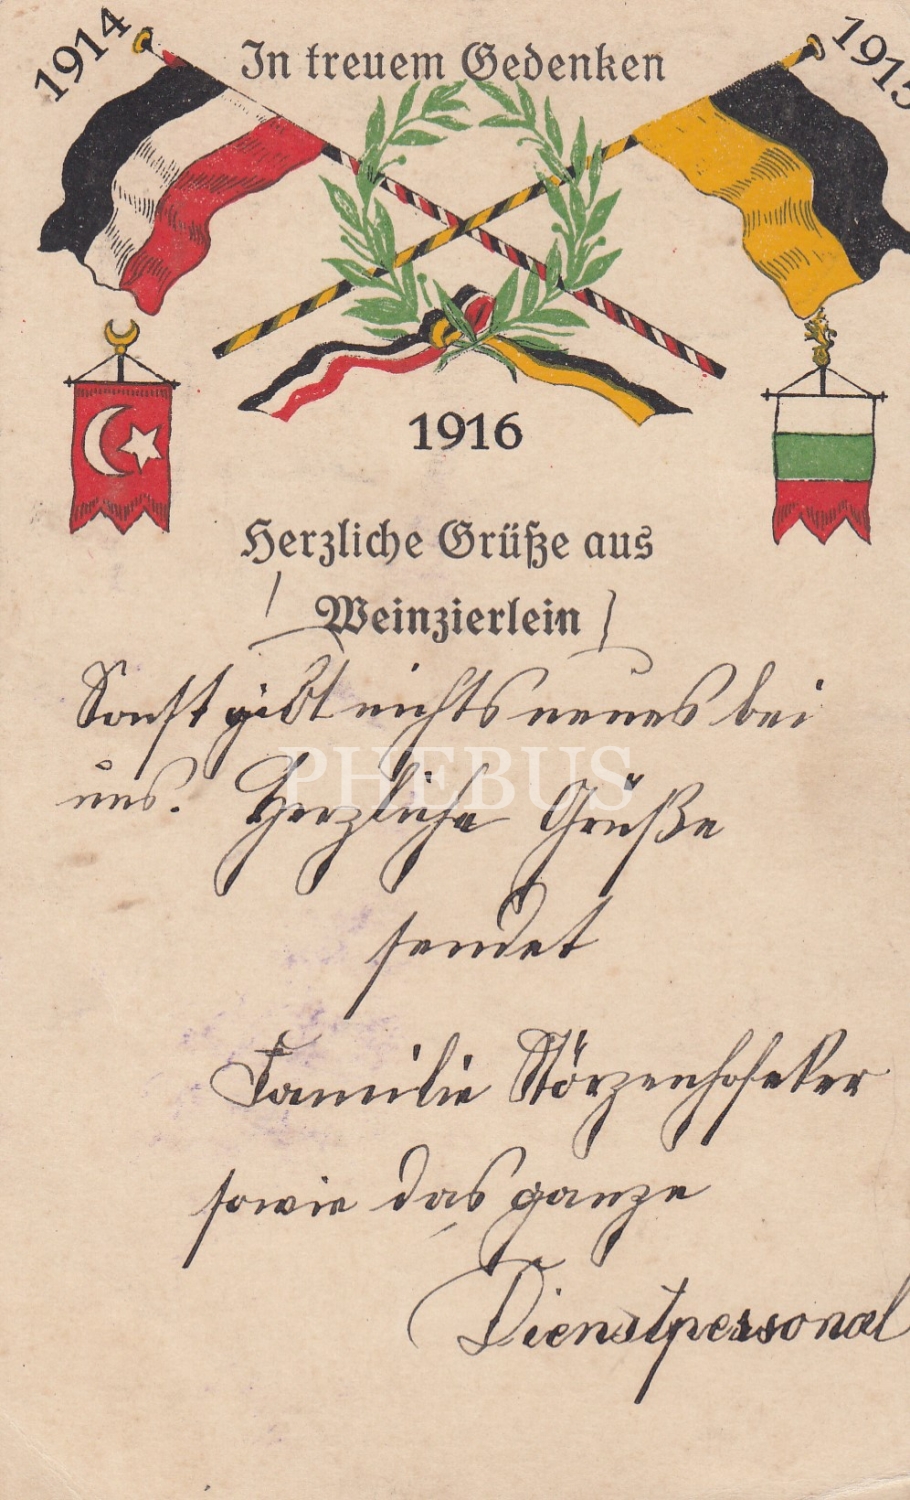 1914
1915
In treuem Gedenken
1916
Herzliche Grüße aus
Weinzierlein
Sonst gibt nichts neues bei
uns. Herzliche Grüße
sendet
Familie
sowie das ganze
Dienstpersonal
PHEBUS